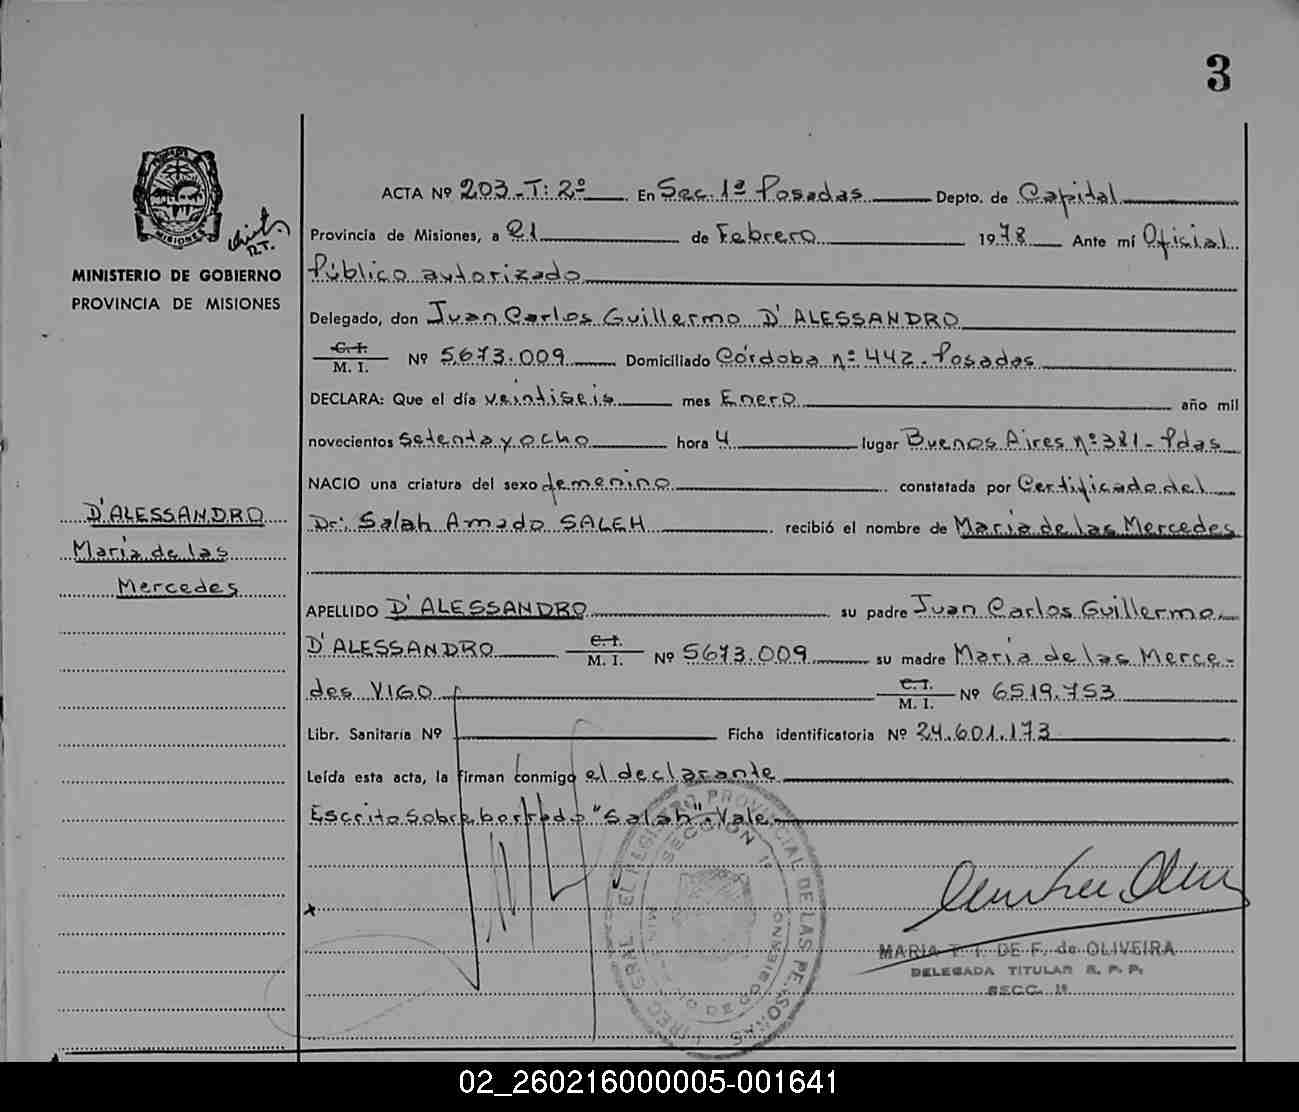 3
ACTA Nº 203-T: 2º En Sec. 1ª Posadas Depto. de Capital
Provincia de Misiones, a 21 de Febrero 1978 Ante mí Oficial
Público autorizado
Delegado, don Juan Carlos Guillermo D'ALESSANDRO
C. I.
M. I. Nº 5673.009 Domiciliado Córdoba nº 442 - Posadas
DECLARA: Que el día veintiseis mes Enero año mil
novecientos setenta y ocho hora 4 lugar Buenos Aires nº 381 - Pdas
NACIO una criatura del sexo femenino constatada por Certificado del
Dr: Salah Amado SALEH recibió el nombre de María de las Mercedes
APELLIDO D'ALESSANDRO su padre Juan Carlos Guillermo
D'ALESSANDRO C. I.
M. I. Nº 5673.009 su madre María de las Merce-
des VIGO C. I.
M. I. Nº 6519.753
Libr. Sanitaria Nº Ficha identificatoria Nº 24.601.173
Leída esta acta, la firman conmigo el declarante
Escrito sobre borrado "Salah". Vale
MISIONES
MINISTERIO DE GOBIERNO
PROVINCIA DE MISIONES
D'ALESSANDRO
María de las
Mercedes
REGISTRO PROVINCIAL DE LAS PERSONAS
SECCION 1ª
MARIA T. I. DE F. de OLIVEIRA
DELEGADA TITULAR R. P. P.
SECC. 1ª
02_260216000005-001641